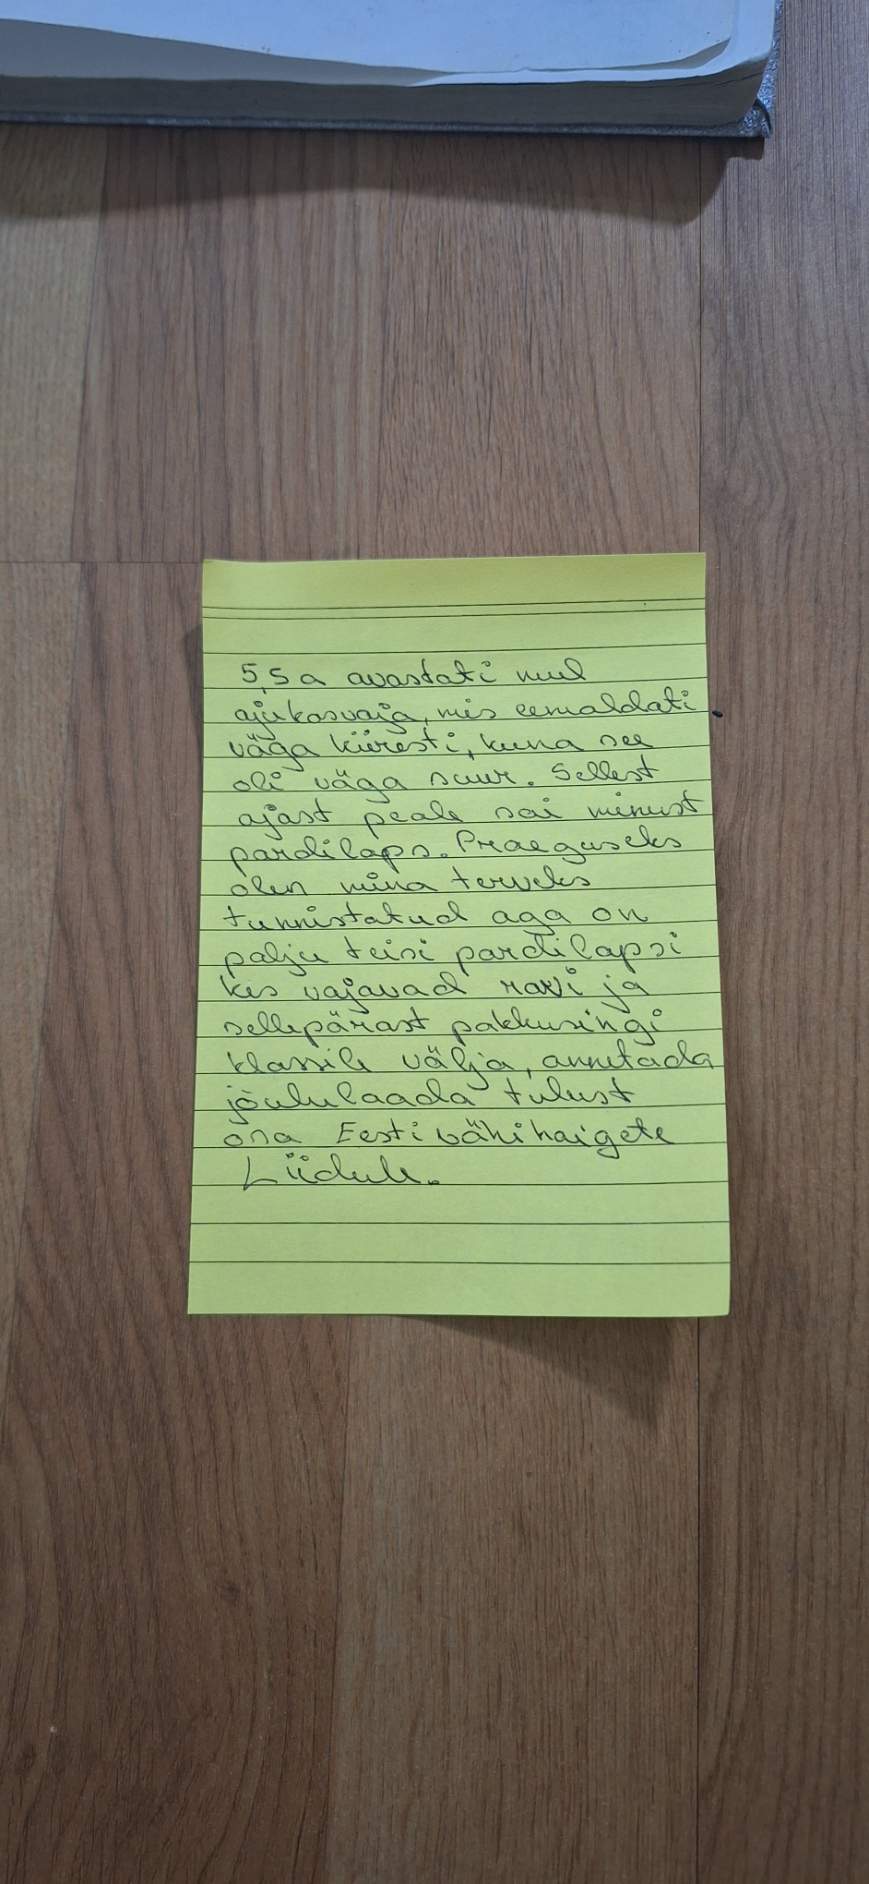 5,5 a avastati mul
ajukasvaja, mis eemaldati
väga kiiresti, kuna see
oli väga suur. Sellest
ajast peale sai minust
pardilaps. Praeguseks
olen mina terveks
tunnistatud aga on
palju teisi pardilapsi
kes vajavad ravi ja
sellepärast pakkusingi
klassile välja, annetada
jõululaada tulust
osa Eesti vähihaigete
Liidule.